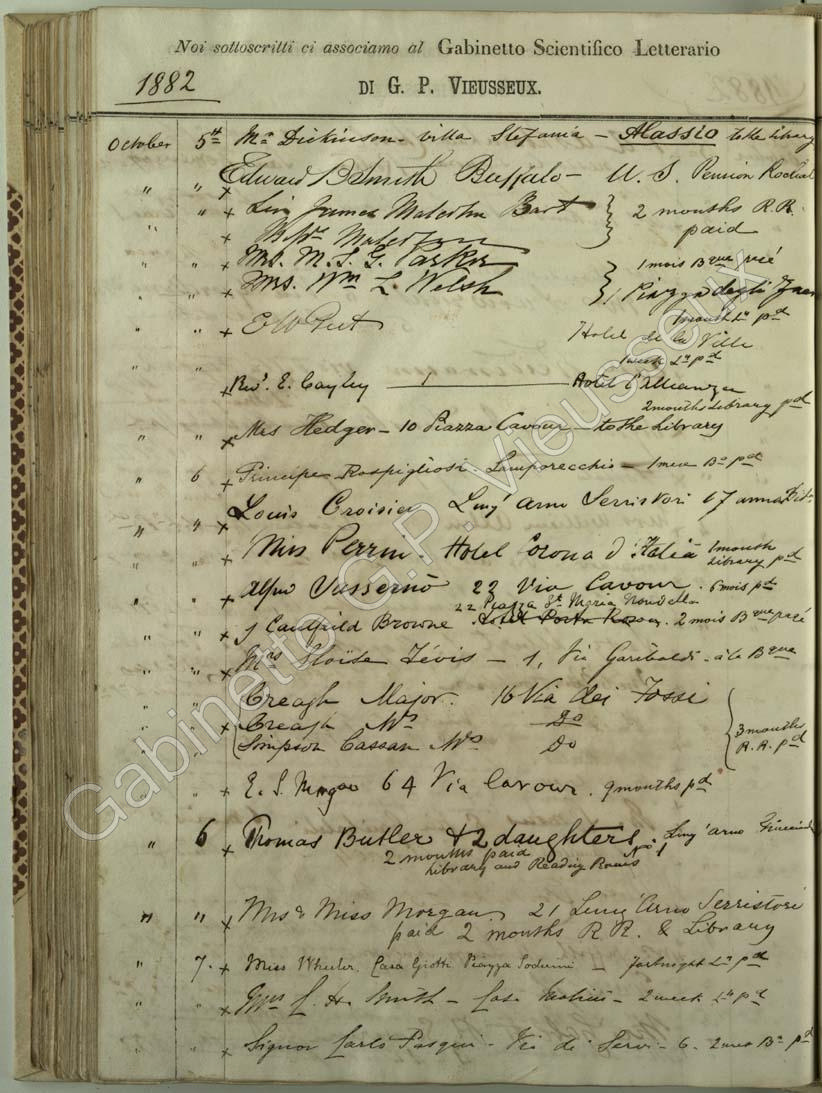 Noi sottoscritti ci associamo al Gabinetto Scientifico Letterario
1882
DI G. P. VIEUSSEUX.
October 5th Mr Dickinson - villa Stefania - Alassio to the Library
" " x Edward B Smith Buffalo - U. S. Pension
" " x James Malcolm Bart } 2 months R.R.
" x Malcolm paid
" " x Mrs. M. S. G. Parker } 1 mois Bque
" x Mrs. Wm L. Welsh } 1 Piazza degli
1 month Ly pd
" " x E W Hotel de la Ville
1 week Ly pd
x Revd. E. Cayley — 1 — Hotel
2 months Library pd
" " x Mrs Hedger - 10 Piazza Cavour - to the Library
" 6 x Principe Rospigliosi Lamporecchio - 1 mese Ba pd
" " x Louis Croisier Lung' Arno Serristori 17
" " x Miss Perrin. Hotel Corona d'Italia 1 month Library pd
" " x 22 Via Cavour. 6 mois pd
22 Piazza Sta Maria Novella
" " x J Caulfeild Browne Hotel Porta Rossa. 2 mois Bque
" " x Mrs Héloïse - 1, Via Garibaldi - à la Bque
Creagh Major. 16 Via dei Fossi
" " x Creagh Mrs Do } 3 months
" " Simpson Cassan Mrs Do R.R. pd
" " x E. S. Morgan 64 Via Cavour. 9 months pd
" 6 x Thomas Butler & 2 daughters. Lung' arno
2 months paid No 1
Library and Reading Rooms
" " x Mrs & Miss Morgan, 21 Lung' Arno Serristori
paid 2 months R R. & Library
" 7. x Miss Wheeler. Casa Piazza Soderini - fortnight Ly pd
" " x H. Smith - Casa - 2 week Ly pd
" " x Signor Carlo Pasqui - Via de' Servi - 6. 2 mesi Ba pd
Gabinetto G.P. Vieusseux